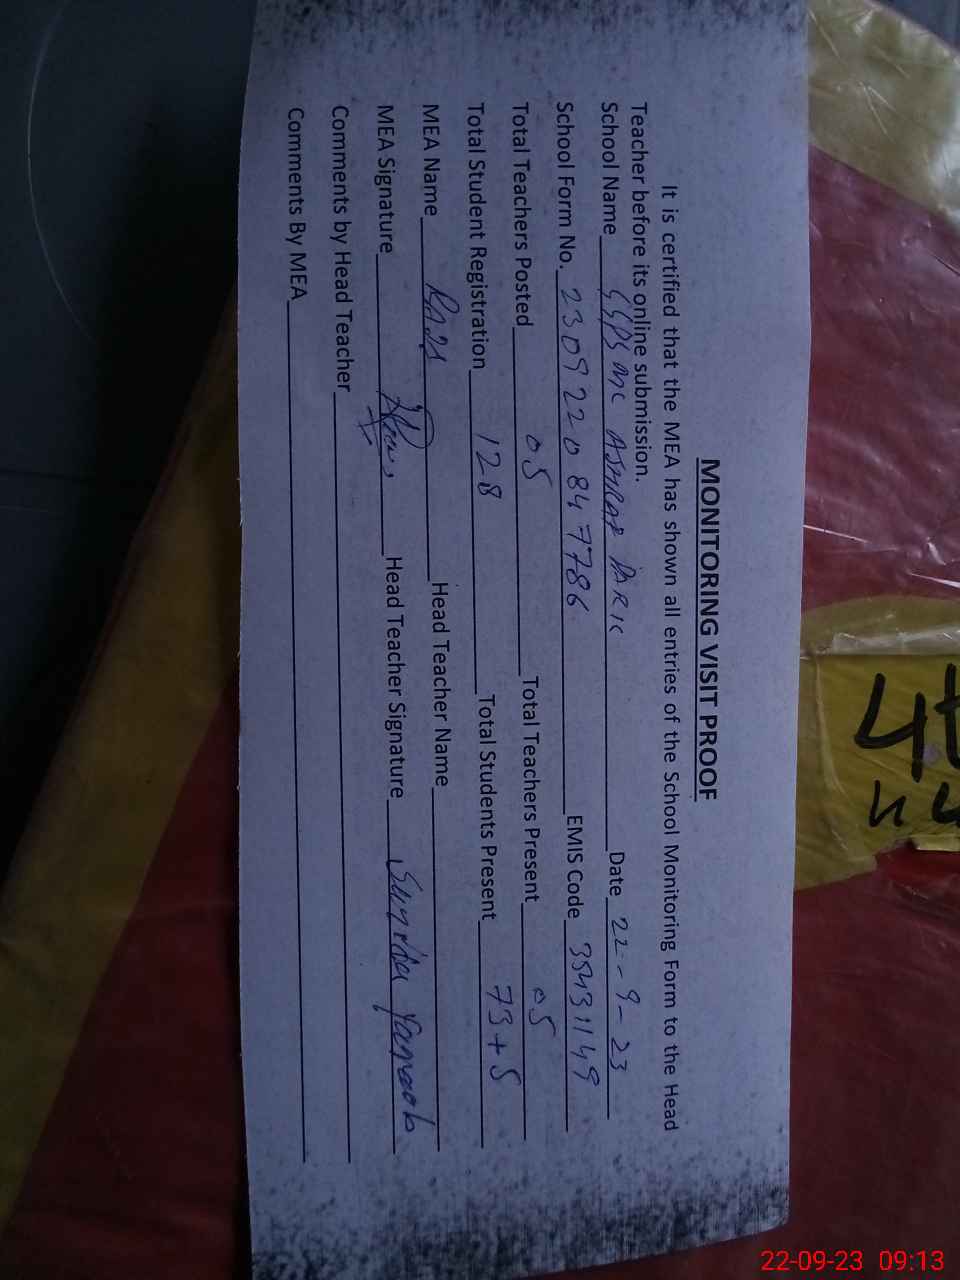 MONITORING VISIT PROOF
It is certified that the MEA has shown all entries of the School Monitoring Form to the Head
Teacher before its online submission.
School Name GGPS MC ASHRAF PARK Date 22-9-23
School Form No. 2309220847786 EMIS Code 35431149
Total Teachers Posted 05 Total Teachers Present 05
Total Student Registration 128 Total Students Present 73+5
MEA Name Head Teacher Name
MEA Signature Head Teacher Signature
Comments by Head Teacher
Comments By MEA
22-09-23 09:13